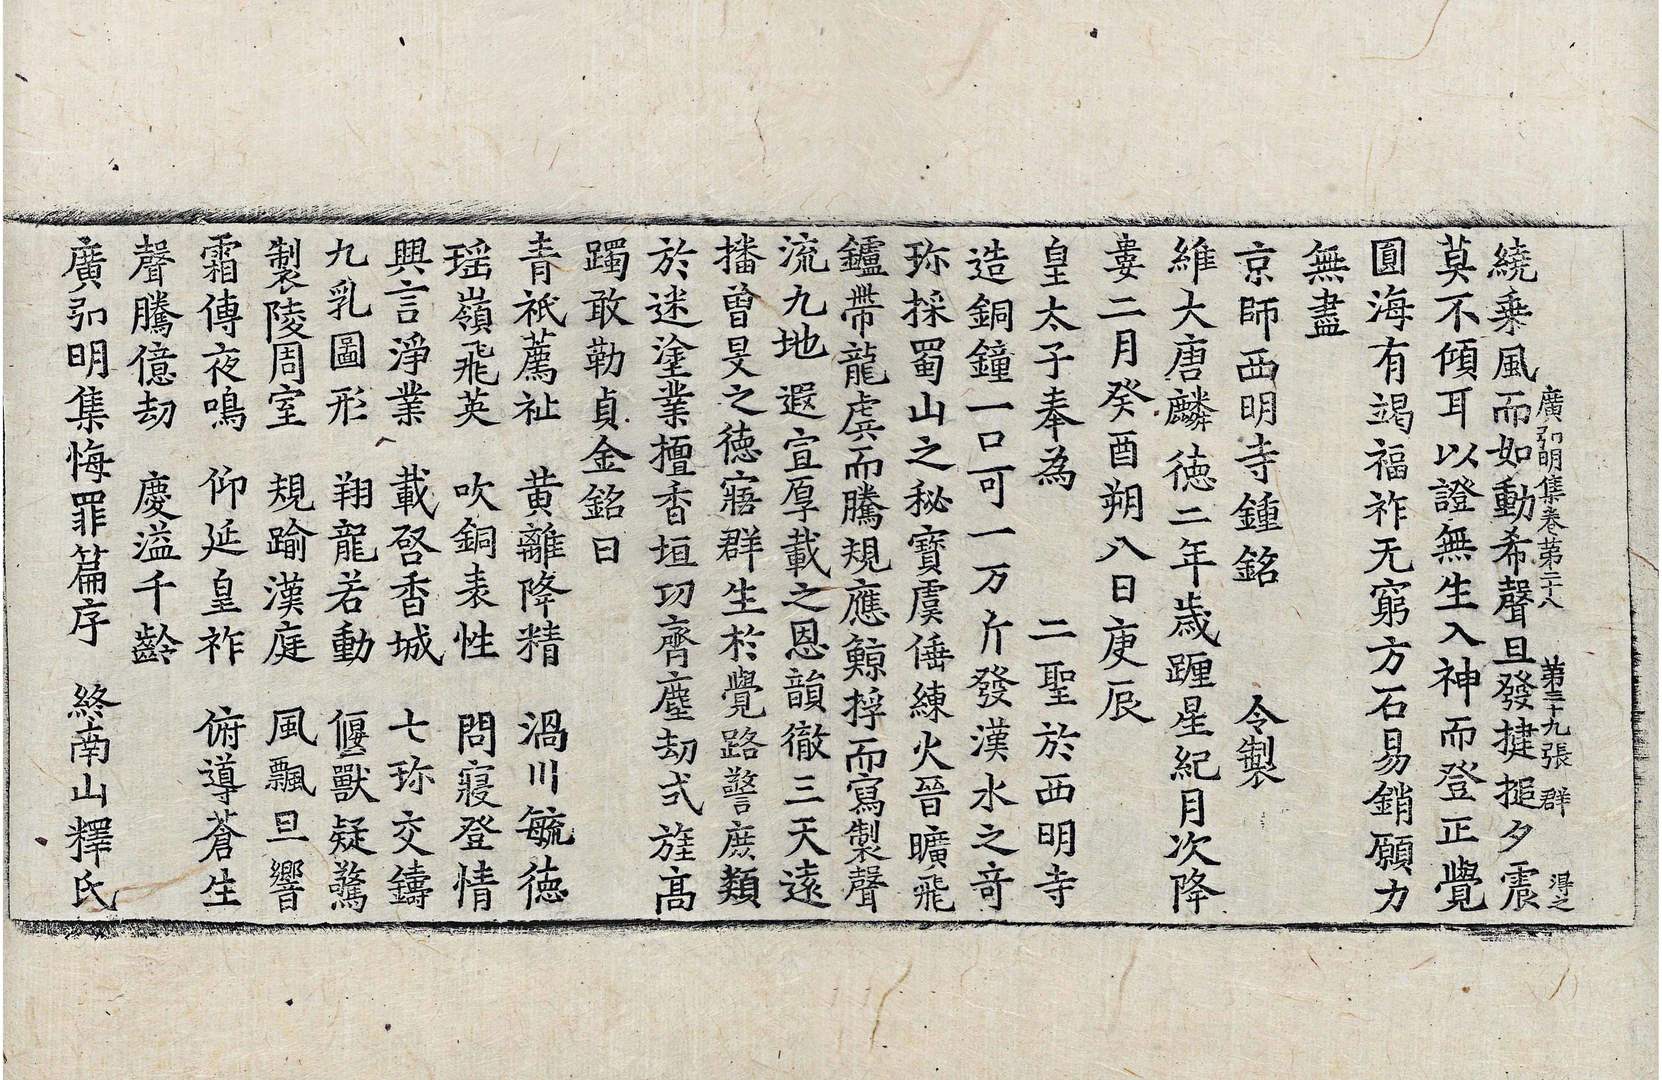 廣弘明集卷第二十八 第三十九張 群 得之
繞乗風而如動希聲旦發揵搥夕震
莫不傾耳以證無生入神而登正覺
圓海有竭福祚无窮方石易銷願力
無盡
京師西明寺鍾銘 令製
維大唐麟徳二年歳躔星紀月次降
婁二月癸酉朔八日庚辰
皇太子奉為 二聖於西明寺
造銅鐘一口可一万斤發漢水之竒
珎採蜀山之秘寶虞倕練火晉曠飛
鑪帶龍虡而騰規應鯨桴而寫製聲
流九地遐宣厚載之恩韻徹三天遠
播曾旻之徳寤群生於覺路警庶類
於迷塗業擅香垣功齊塵劫式旌高
躅敢勒貞金銘曰
青祇薦祉 黄離降精 渦川毓徳
瑶嶺飛英 吹銅表性 問寢登情
興言淨業 載啓香城 七珎交鑄
九乳圖形 翔龍若動 偃獸疑驚
製陵周室 規踰漢庭 風飄旦響
霜傳夜鳴 仰延皇祚 俯導蒼生
聲騰億劫 慶溢千齡
廣弘明集悔罪篇序 終南山釋氏